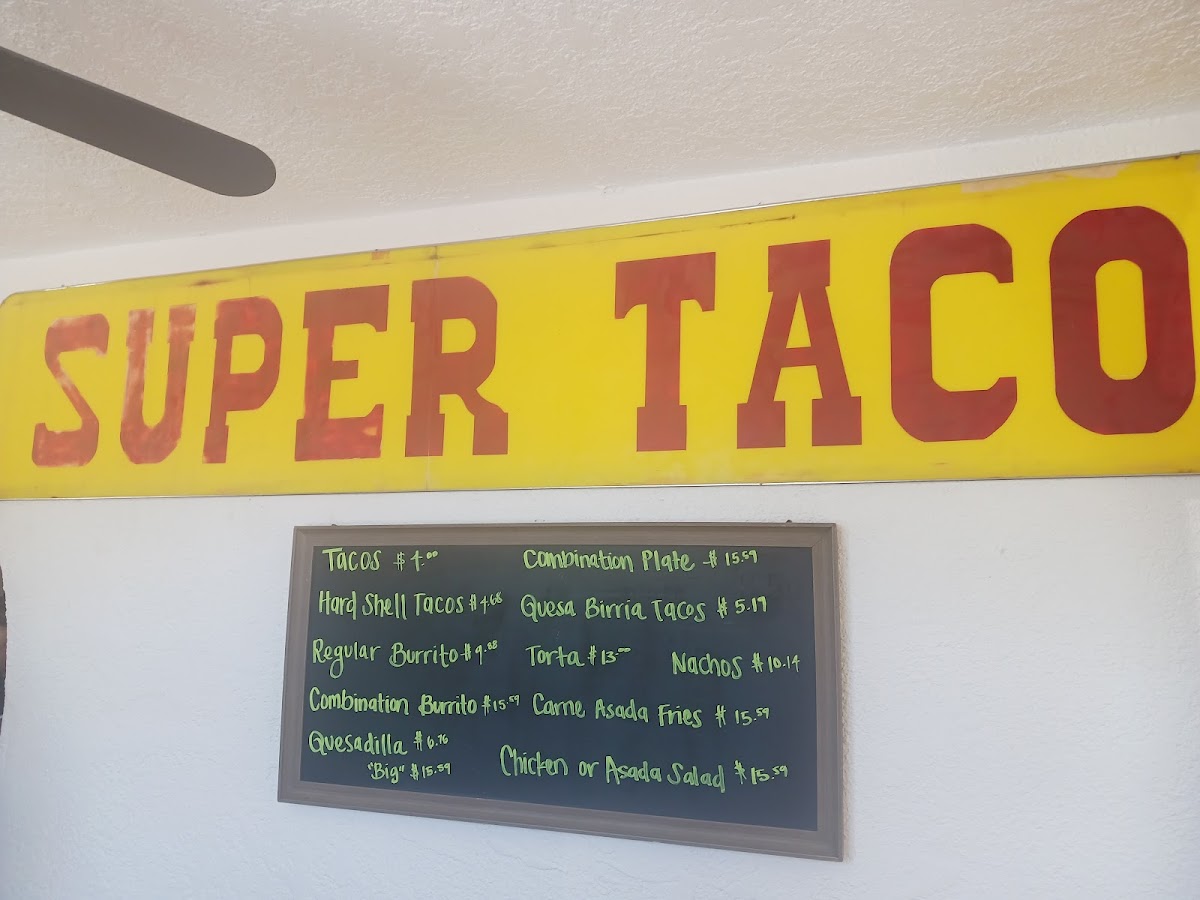 SUPER TACO
Tacos $4.00
Hard Shell Tacos $4.68
Regular Burrito $9.88
Combination Burrito $15.59
Quesadilla $6.76
"Big" $15.59
Combination Plate $15.59
Quesa Birria Tacos $5.19
Torta $13.00 Nachos $10.14
Carne Asada Fries $15.59
Chicken or Asada Salad $15.59